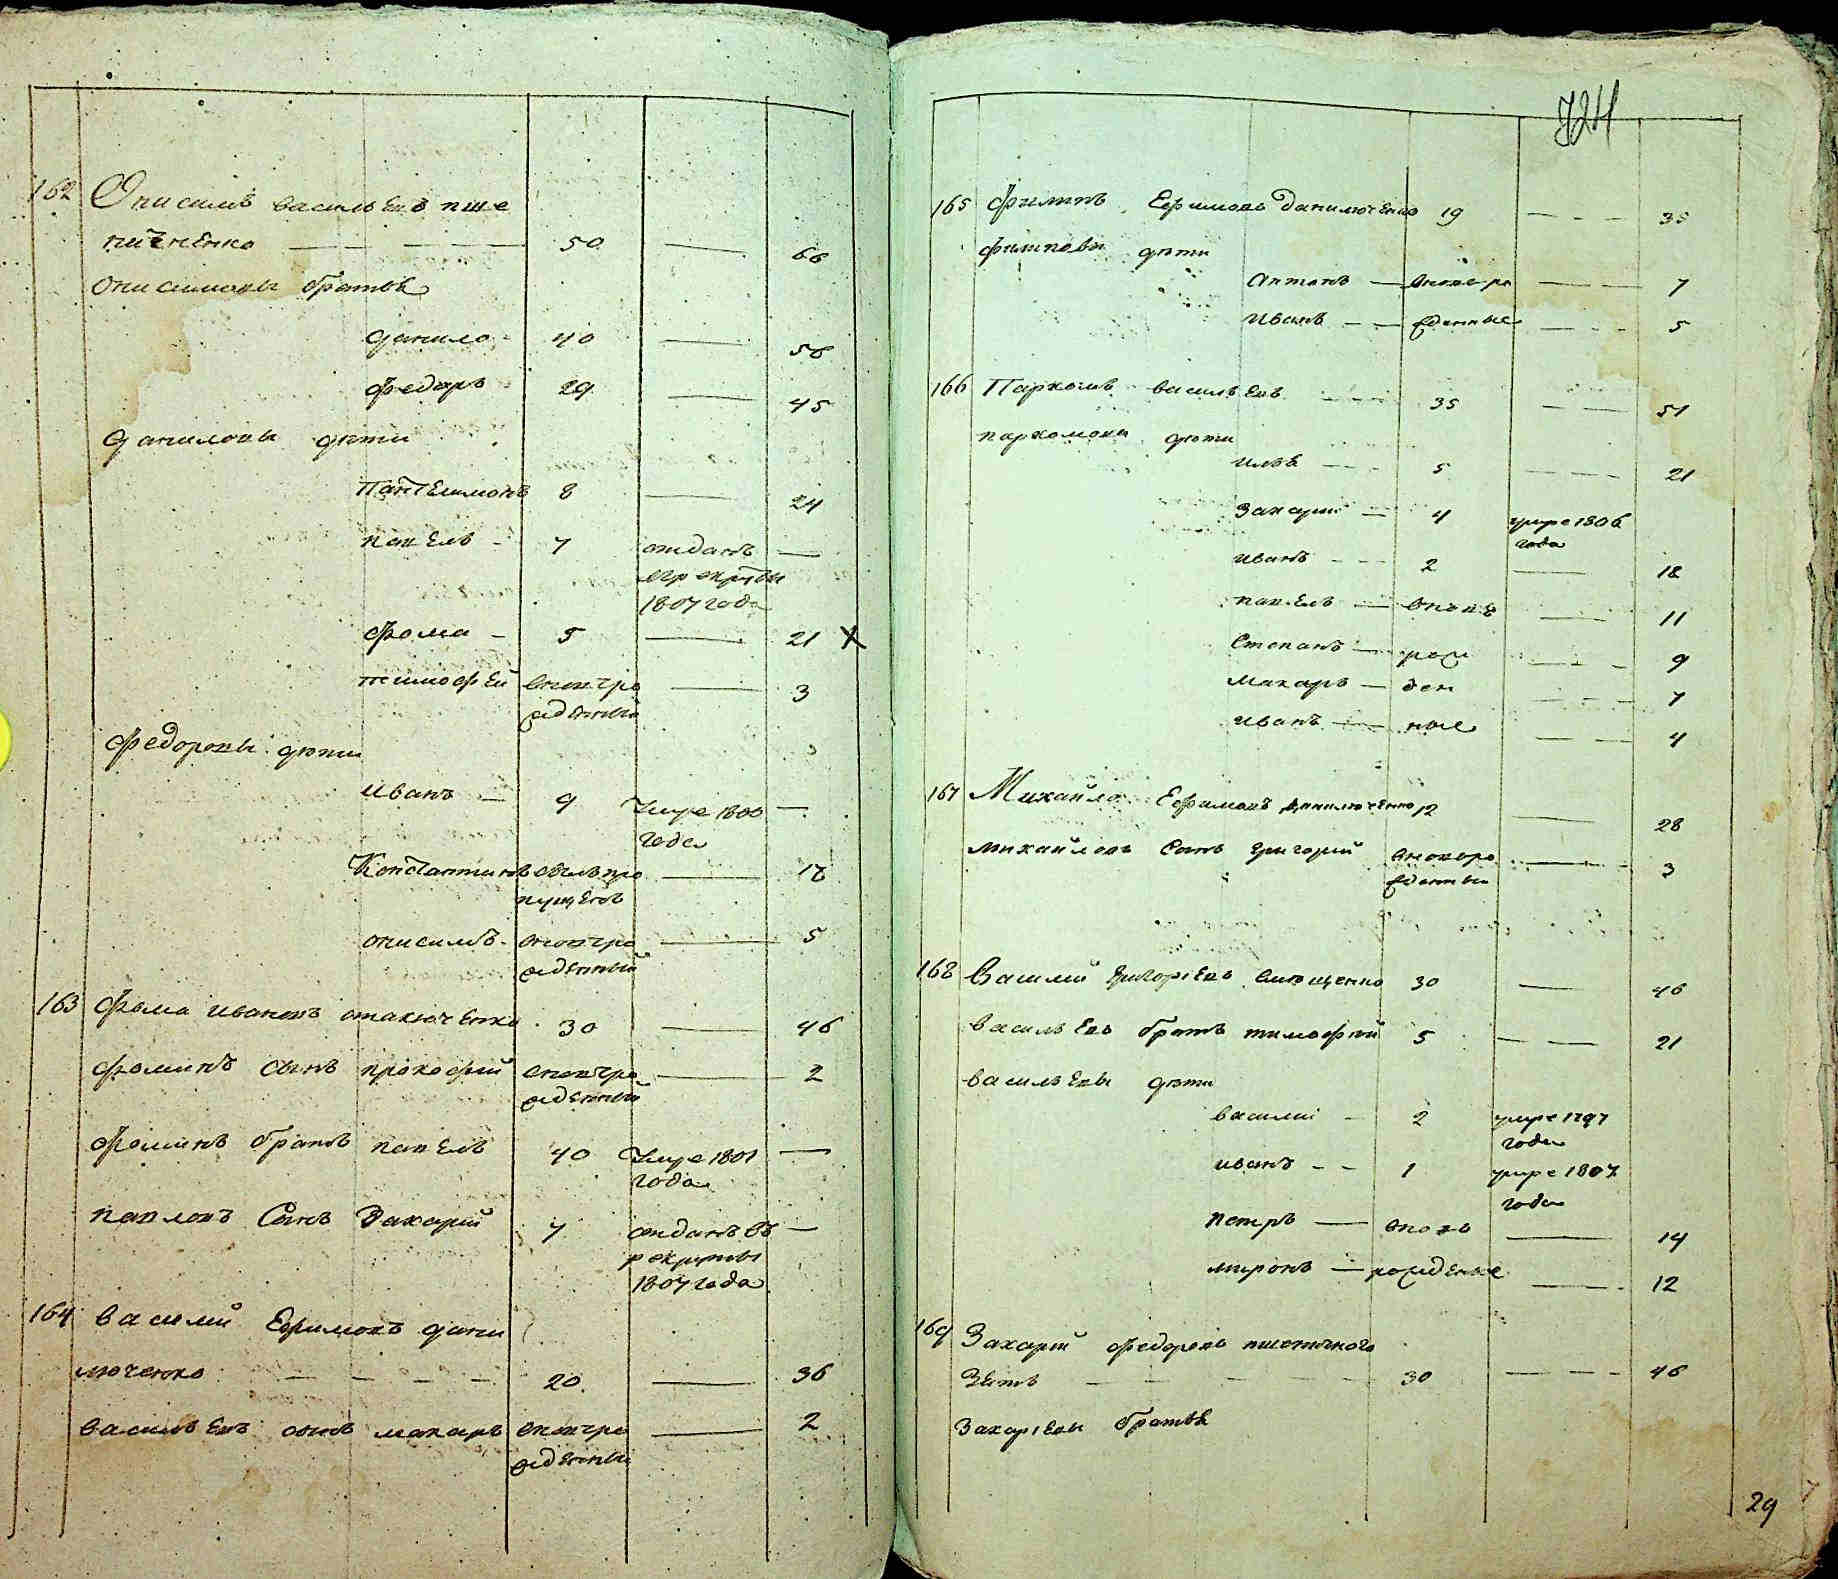 162 Онисимъ васильевъ пше
ничненко — — — 50 — 66
Онисимовы братья
данило 40 — 56
Федоръ 29 — 45
даниловы дети
Пантелимонъ 8 — 24
павелъ - 7 отданъ —
в рекруты
1807 года
Фома - 5 — 21 X
тимофей вновь ро — 3
жденный
Федоровы дети
Иванъ — 9 Умре 1800 —
года
Константинъ былъ про — 17
пущенъ
онисимъ - вновь ро — 5
жденный
163 Фома ивановъ 30 — 46
Фоминъ сынъ прокофий вновь ро — 2
жденный
Фоминъ братъ павелъ 40 Умре 1801 —
года
павловъ Сынъ Захарий 7 отданъ въ —
рекруты
1807 года
164 василий Ефимовъ дани
люченко — — — — 20 — 36
васильевъ сынъ макаръ вновь ро — 2
жденный
724
165 Филипъ Ефимовъ данилюченко 19 — — — 35
Филиповы дети
Антонъ — вновь ро — — 7
Иванъ — — жденные — — 5
166 Пархомъ васильевъ — — 35 — — 51
пархомовы дети
илья — — 5 — — — 21
Захарий — 4 умре 1806
года
иванъ — — 2 — 18
павелъ — вновь — 11
Степанъ — рож — — 9
макаръ — ден — — 7
иванъ — ные — — 4
167 Михайло Ефимовъ данилюченко 12 — 28
михайловъ Сынъ григорий вновь ро — 3
жденный
168 Василий Григорьевъ 30 — 46
васильевъ братъ тимофей 5 — — 21
васильевы дети
василий — 2 умре 1797
года
иванъ — — 1 умре 1807
года
петръ — вновь — 14
миронъ — рожденые — 12
169 Захарий Федоровъ пшеничного
Зять — — — — — 30 — — — 46
Захарьевы братья
29